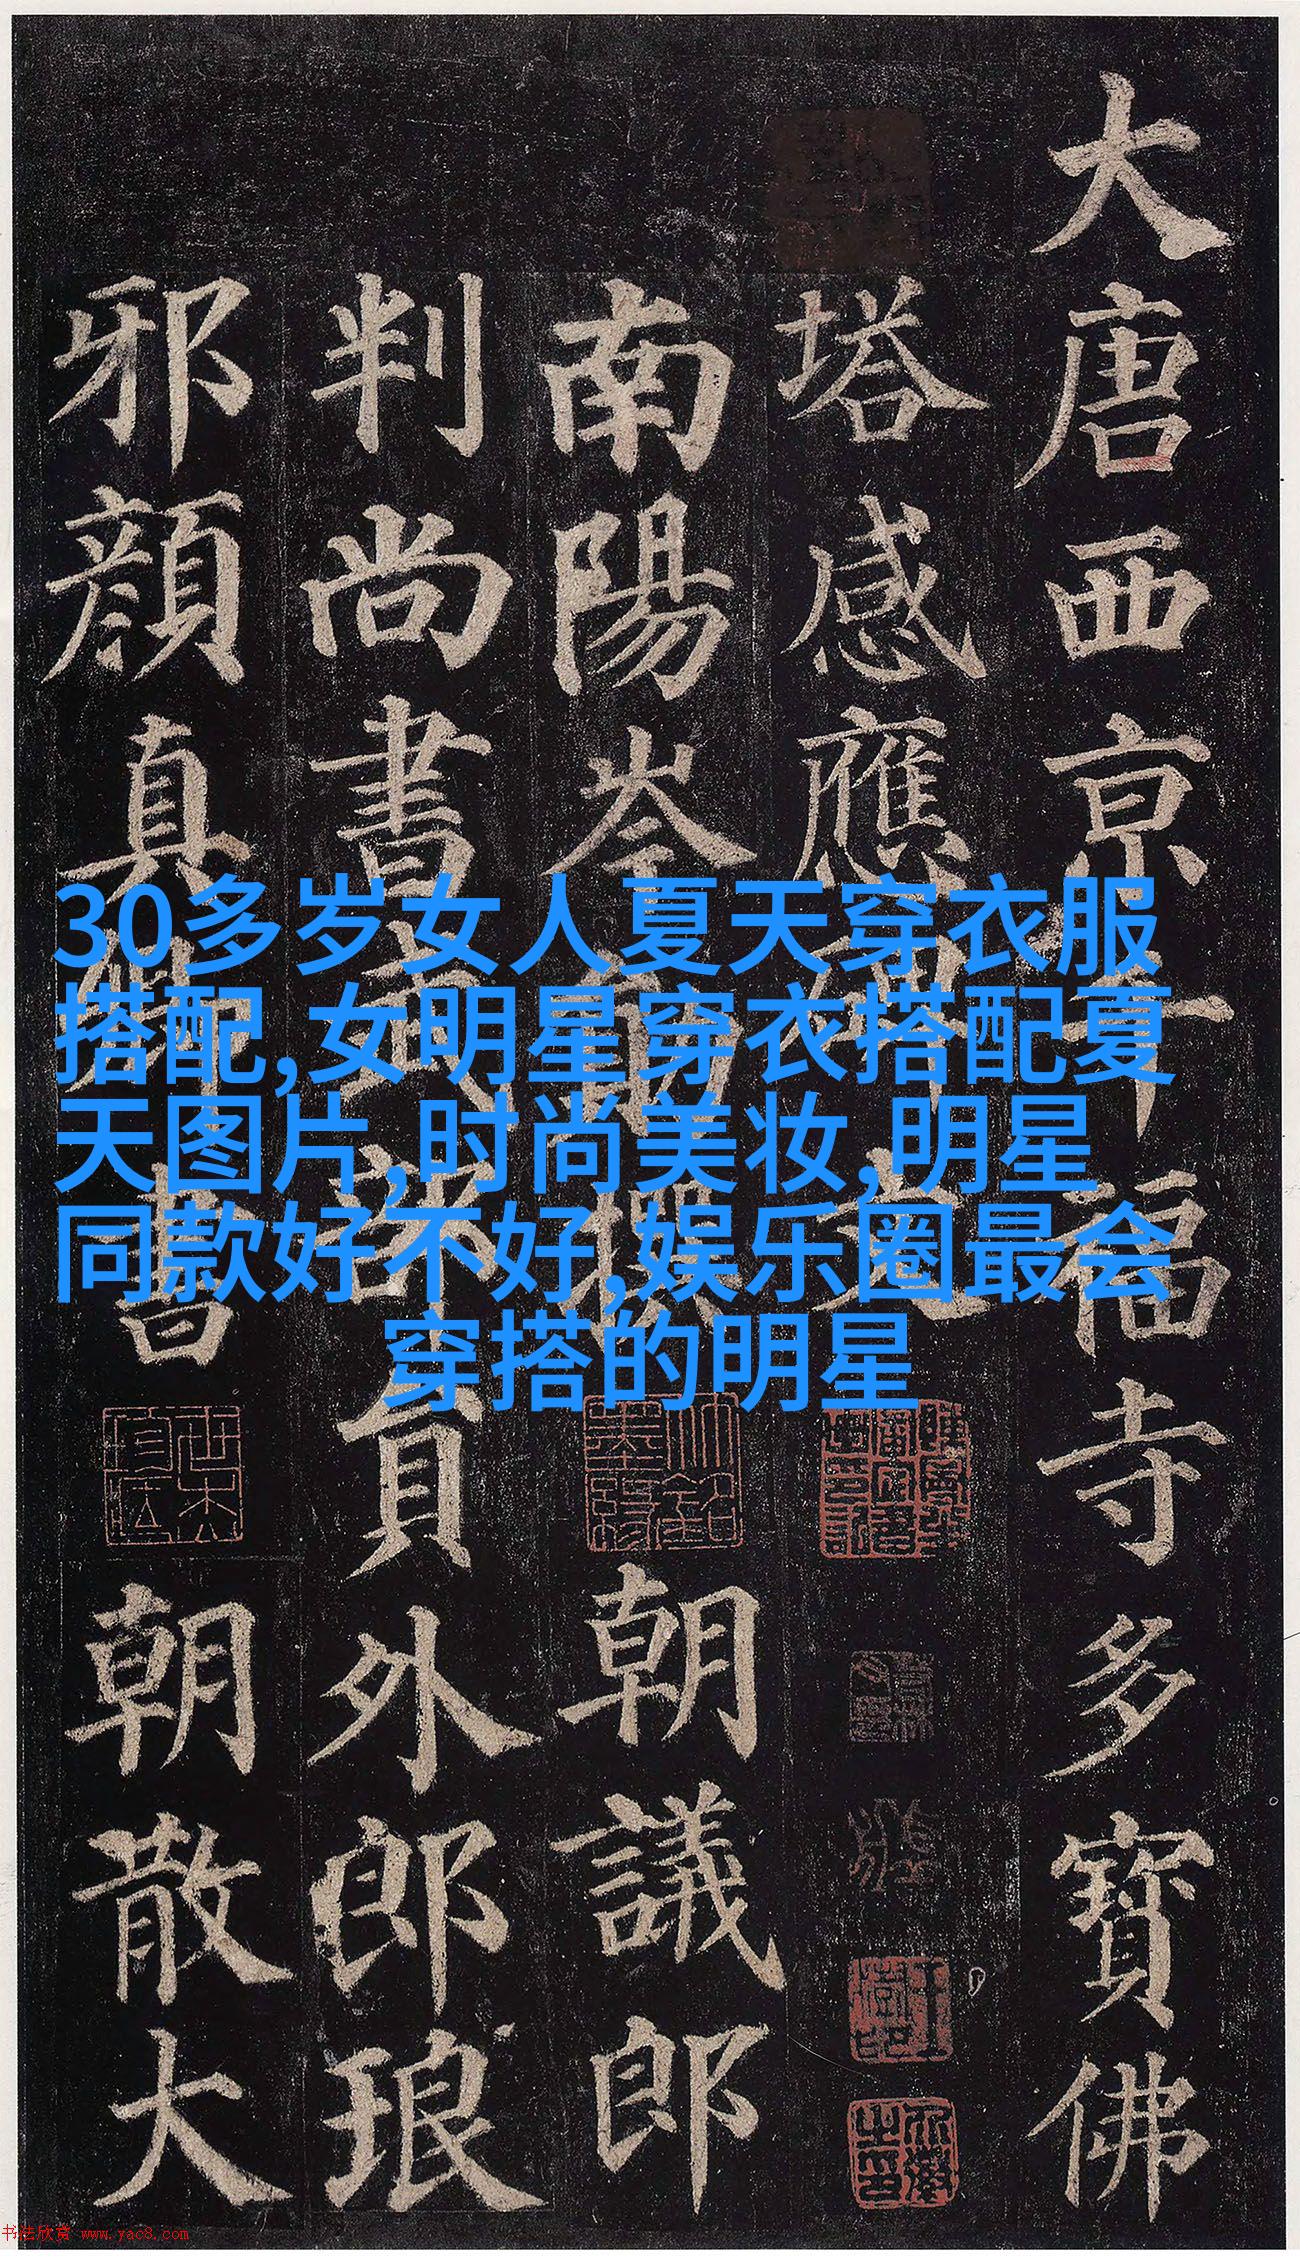 大唐西京千福寺多寶佛
塔感應碑文
南陽岑勛撰朝議郎
判尚書武部員外郎琅
邪顏真卿書朝散大
30多岁女人夏天穿衣服
搭配,女明星穿衣搭配夏
天图片,时尚美妆,明星
同款好不好,娱乐圈最会
穿搭的明星
书法欣赏 www.yac8.com